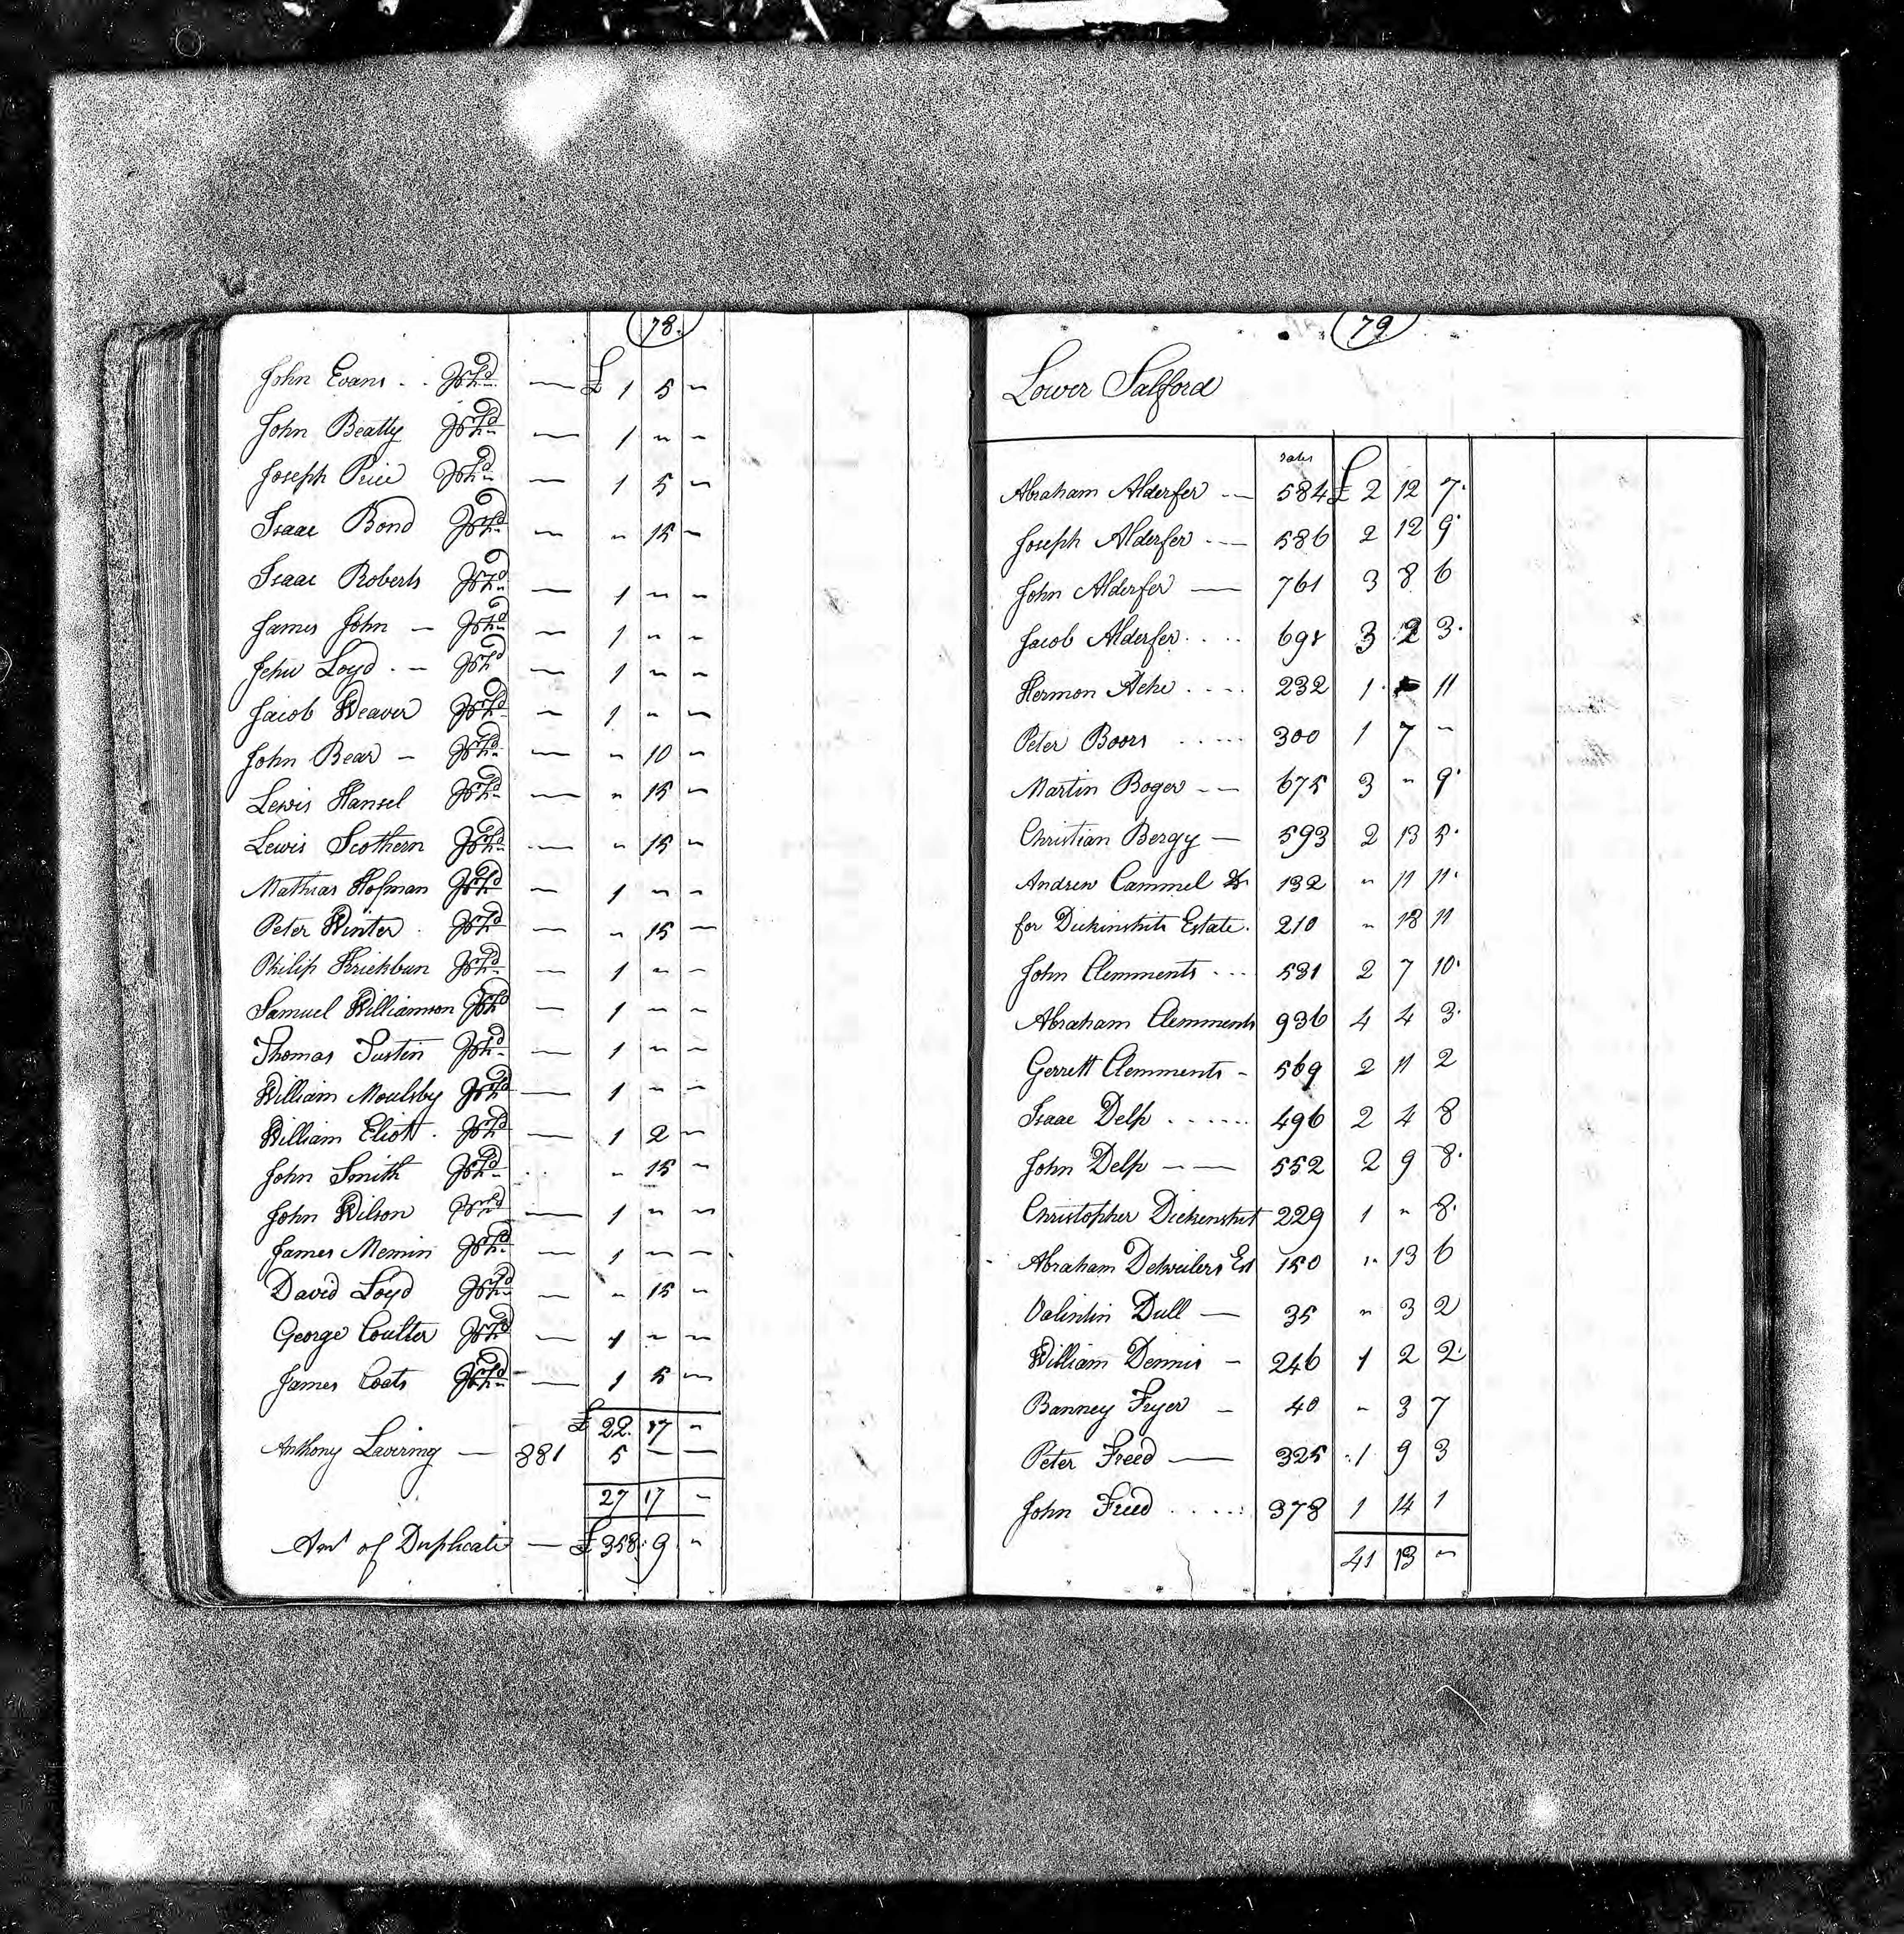 78.
John Evans . . Job.d — £ 1 5 "
John Beatty — 1 " "
Joseph Price — 1 5 "
Isaac Bond — " 15 "
Isaac Roberts — 1 " "
James John — — 1 " "
Jehu Loyd . — — 1 " "
Jacob Weaver — 1 " "
John Bear — — " 10 "
Lewis Hansel — " 15 "
Lewis Scothern — " 15 "
Mathias Hofman — 1 " "
Peter Winter . — " 15 —
Philip Krickbun — 1 " "
Samuel Williamson — 1 " "
Thomas Sustin — 1 " "
William Moulsby — 1 " "
William Eliott . — 1 2 "
John Smith . . " 15 "
John Wilson — 1 " "
James Memin — 1 " "
David Loyd — " 15 "
George Coulter — 1 " "
James Coats — 1 5 "
£ 22. 17 "
Anthony Lavering — 881 5 — —
27 17 "
Amt of Duplicate — £ 358: 9 "
79
Lower Salford
rates
Abraham Alderfer — 584 £ 2 12 7.
Joseph Alderfer — 586 2 12 9.
John Alderfer — 761 3 8 6
Jacob Alderfer . . . . 691 3 2 3.
Hermon Ache . . . . 232 1 " 11
Peter Boors . . . . . 300 1 7 "
Martin Boger — — 675 3 " 9.
Christian Bergy — 593 2 13 5.
Andrew Cammel & 132 " 11 11.
for Dickinshits Estate. 210 " 18 11
John Clemments . . . 531 2 7 10.
Abraham Clemments 936 4 4 3.
Gerrett Clemments - 569 2 11 2
Isaac Delp . . . . . . 496 2 4 8
John Delp — — 552 2 9 8.
Christopher Dickenshut 229 1 " 8.
Abraham Detweilers Est 150 " 13 6
Valintin Dull — 35 " 3 2
William Dennis — 246 1 2 2.
Banney Fryer — 40 " 3 7
Peter Freed — 325 1 9 3
John Freed . . . . . 378 1 14 1
41 13 "